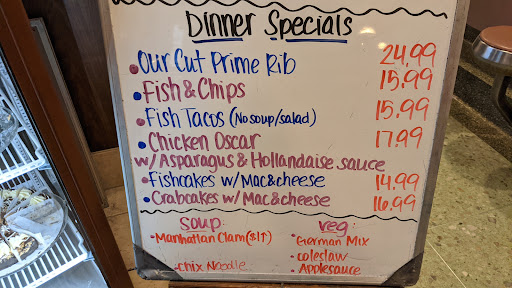 Dinner Specials
• Our Cut Prime Rib 24.99
• Fish & Chips 15.99
• Fish Tacos (No soup/salad) 15.99
• Chicken Oscar 17.99
w/ Asparagus & Hollandaise sauce
• Fishcakes w/ Mac & cheese 14.99
• Crabcakes w/ Mac & cheese 16.99
Soup: veg:
• Manhattan Clam ($1↑) • German Mix
• coleslaw
• Chix Noodle • Applesauce